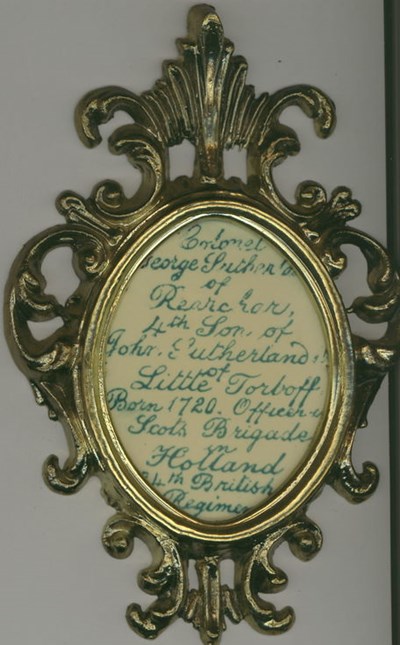 Colonel
George Suther
of
Rearchar,
4th Son of
John Sutherland
of
Little Torboff
Born 1720. Officer
Scots Brigade
in
Holland
4th British
Regimen